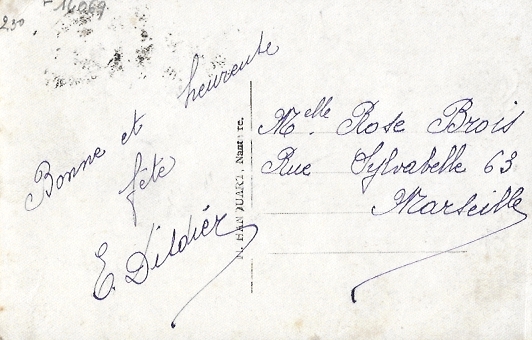 230
16069
Bonne et heureuse
fête
E. Didier
HANQUART, Nanterre.
Melle. Rose Brois
Rue Sylvabelle 63
Marseille